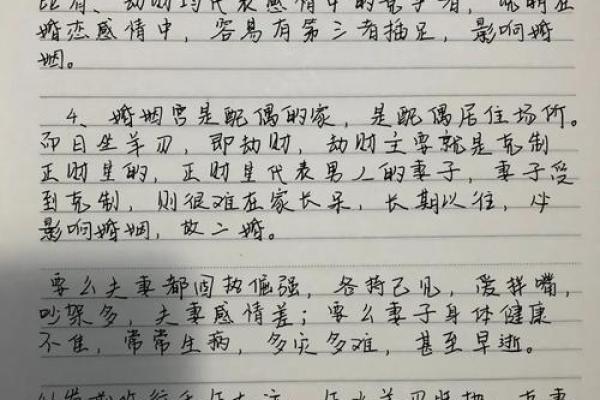 比肩、劫财均代表感情中的竞争者，说明在
婚恋感情中，容易有第三者插足，影响婚
姻。
4、婚姻宫是配偶的家，是配偶居住场所。
而日坐羊刃，即劫财，劫财主要就是克制
正财星的，正财星代表男人的妻子，妻子受
到克制，则很难在家长呆，长期以往，必
影响婚姻，故二婚。
要么夫妻都固执倔强，各持己见，爱拌嘴，
吵架多，夫妻感情差；要么妻子身体健康
不佳，常常生病，多灾多难，甚至早逝。